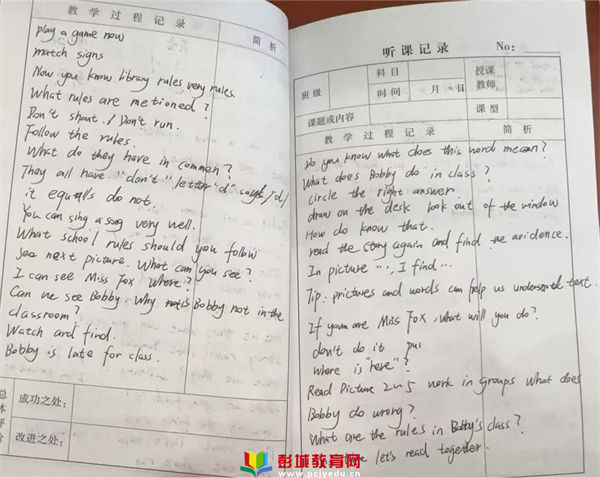 教学过程记录
简析
play a game now
match signs
Now you know library rules very rules.
What rules are metioned?
Don't shout. / Don't run.
Follow the rules.
What do they have in common?
They all have "don't" letter "d" says /d/
it equalls do not.
You can sing a song very well.
What school rules should you follow
see next picture. What can you see?
I can see Miss Fox. Where?
Can we see Bobby. Why is Bobby not in the
classroom?
Watch and find.
Bobby is late for class.
总体评价
成功之处:
改进之处:
听课记录 No:
班级
科目
授课教师
时间 月 日
课题或内容
课型
教学过程记录
简析
Do you know what does this words mean?
What does Bobby do in class?
Circle the right answer.
draw on the desk look out of the window
How do know that.
read the story again and find the evidence.
In picture ..., I find...
Tip: prictures and words can help us understand text.
If you are Miss Fox, what will you do?
don't do it
where is "here"?
Read Picture 2~5 work in groups What does
Bobby do wrong?
What are the rules in Bobby's class?
let's read together.
彭城教育网
www.pcjyedu.cn